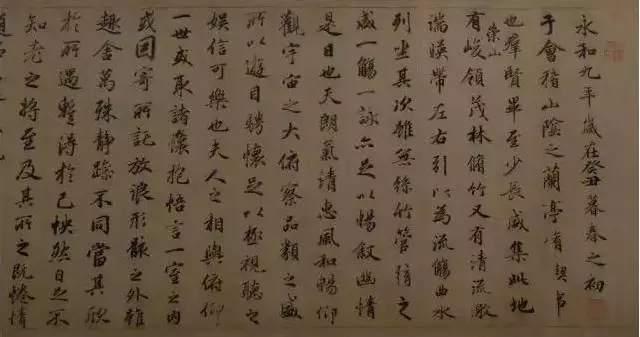 永和九年歲在癸丑暮春之初
于會稽山陰之蘭亭脩禊事
也群賢畢至少長咸集此地
有崇山峻領茂林脩竹又有清流激
湍暎帶左右引以為流觴曲水
列坐其次雖無絲竹管絃之
盛一觴一詠亦足以暢敘幽情
是日也天朗氣清惠風和暢仰
觀宇宙之大俯察品類之盛
所以遊目騁懷足以極視聽之
娛信可樂也夫人之相與俯仰
一世或取諸懷抱悟言一室之內
或因寄所託放浪形骸之外雖
趣舍萬殊靜躁不同當其欣
於所遇暫得於己怏然自足不
知老之將至及其所之既惓情